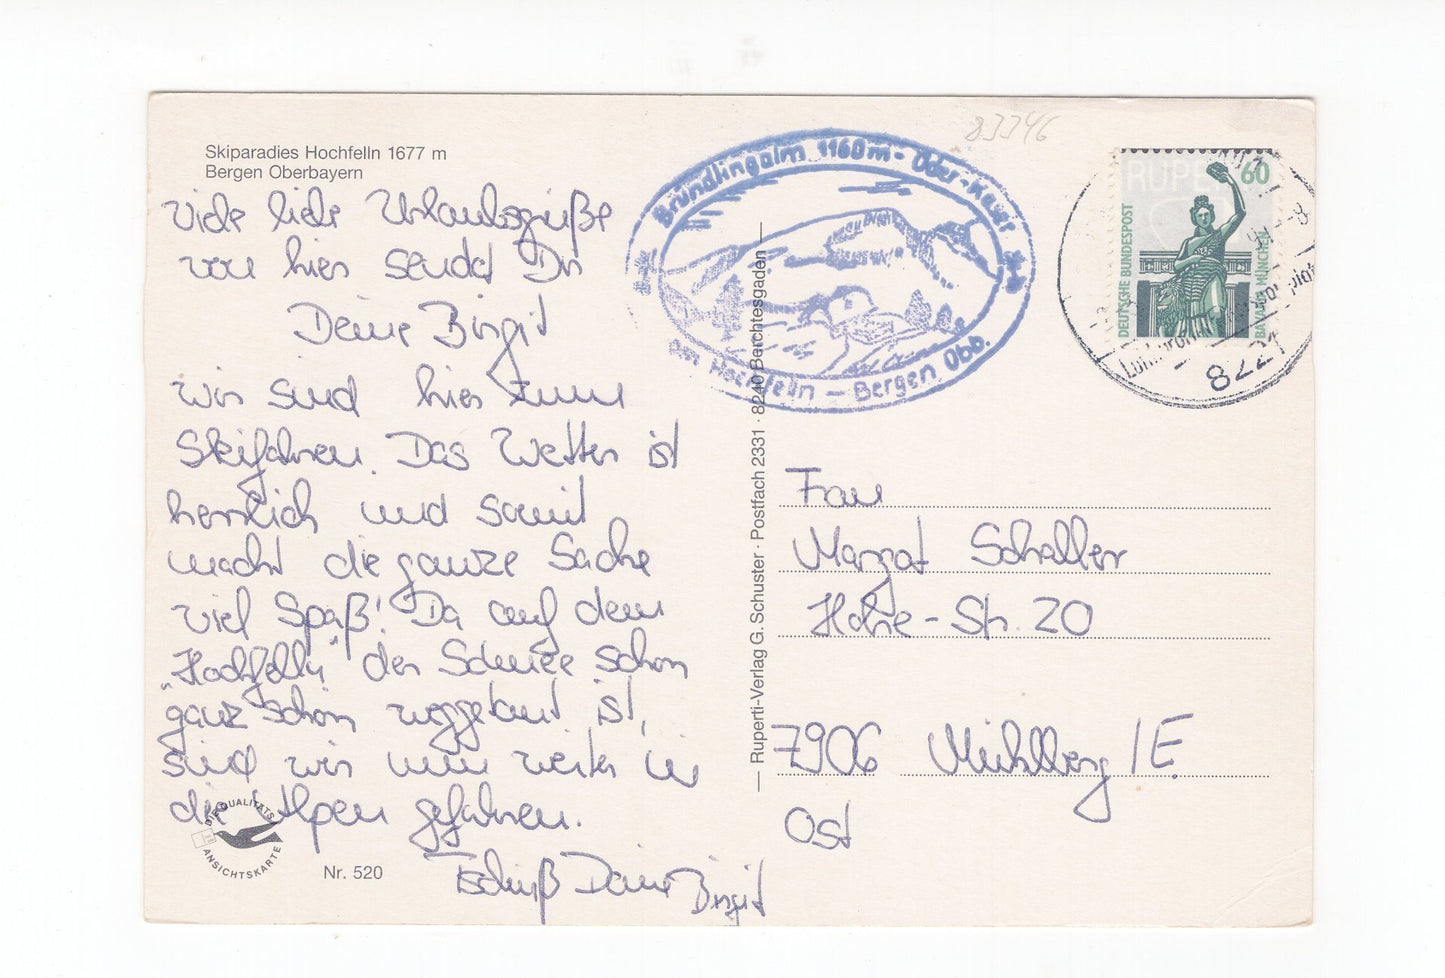 Skiparadies Hochfelln 1677 m
Bergen Oberbayern
Viele liebe Urlaubsgrüße
von hier sendet Dir
Deine Birgit
Wir sind hier zum
Skifahren. Das Wetter ist
herrlich und somit
macht die ganze Sache
viel Spaß! Da auf dem
"Hochfelln" der Schnee schon
ganz schön weggetaut ist,
sind wir nun weiter in
die Alpen gefahren.
Tschüß Deine Birgit
DIE QUALITÄTS
ANSICHTSKARTE
Nr. 520
Ruperti-Verlag G. Schuster · Postfach 2331 · 8240 Berchtesgaden
Bründlingalm 1160m - Ober-Kaser
Am Hochfelln - Bergen Obb.
83346
RUPE
60
DEUTSCHE BUNDESPOST
BAVARIA MÜNCHEN
8221
Frau
Margot Schaller
Hohe-Str. 20
7906 Mühlberg/E.
Ost